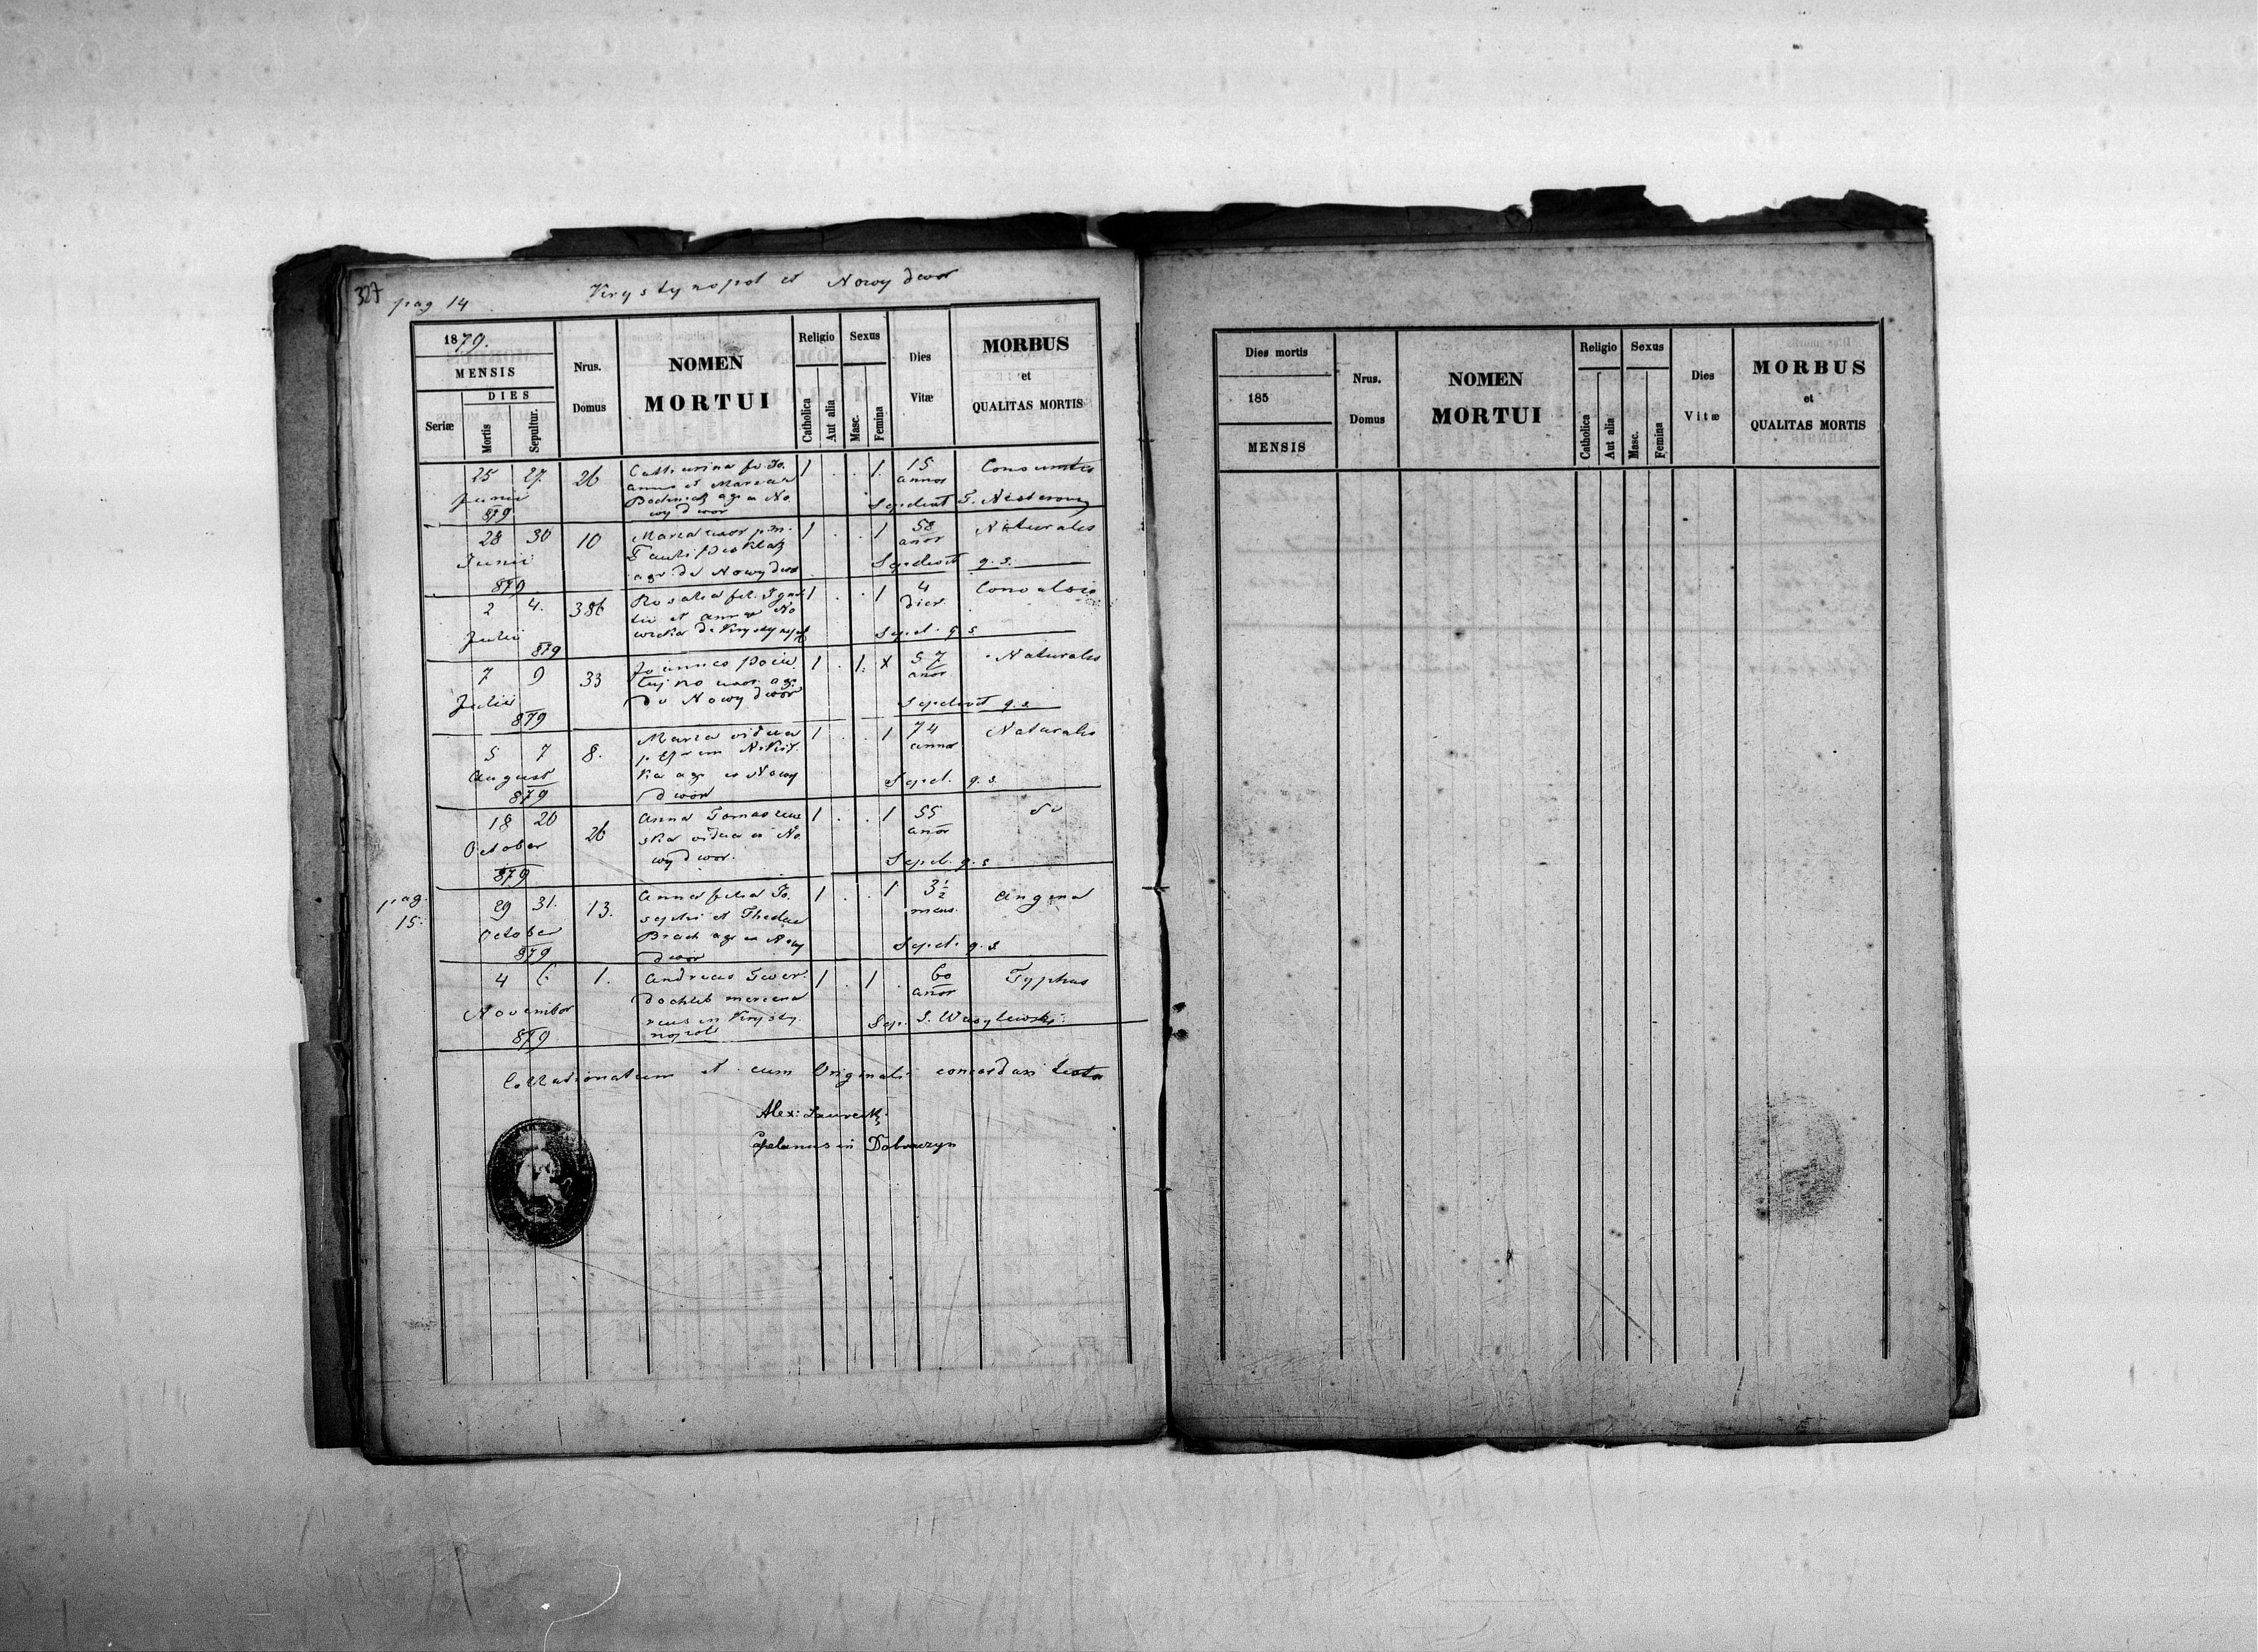 327 pag 14 Krystynopol et Nowydwor
1879.
MENSIS
DIES
Seriæ Mortis Sepultur.
Nrus. Domus
NOMEN MORTUI
Religio
Catholica Aut alia
Sexus
Masc. Femina
Dies Vitæ
MORBUS
et
QUALITAS MORTIS
25 27. 26 Catharina fil. Jo. 1 . . 1. 15 Consumtio
Junii annis et Mariae annor
agr in No
879 wydwor Sepelivit
28 30 10 Maria uxor p.m. 1 . . 1 58 Naturalis
Junii Pauli anor
879 agr de Nowydwor Sepelivit q. s.
2 4. 386 Rosalia fil. Igna 1 . . 1 4 Convulsio
Julii tii et Annae No dier.
879 wicka de Krystynopol Sepel. q s
7 9 33 Joannes 1 . 1. x 57 Naturalis
Julii agr. anor
879 de Nowydwor Sepelivit q. s.
5 7 8. Maria vidua 1 . . 1 74 Naturalis
August annor
ka agr in Nowy
879 dwor Sepel. q. s.
18 20 26 Anna Tomaszew 1 . . 1 55 do
October ska vidua in No anor
879 wydwor. Sepel. q. s
pag. 15.
29 31. 13. Anna filia Jo. 1 . . 1 3½ Angina
October sephi et Theclae mens.
agr in Nowy
879 dwor Sepel. q. s
4 6 1. Andreas Twer. 1 . 1 . 60 Typhus
November dochleb mercena anor
879 rius in Krysty Sep. S. Wasylewski
nopol
Collationatum et cum Originali concordari testor
Alex:
Capelanus in Dobraczyn
Dies mortis
185
MENSIS
Nrus.
Domus
NOMEN
MORTUI
Religio
Catholica Aut alia
Sexus
Masc. Femina
Dies
Vitæ
MORBUS
et
QUALITAS MORTIS